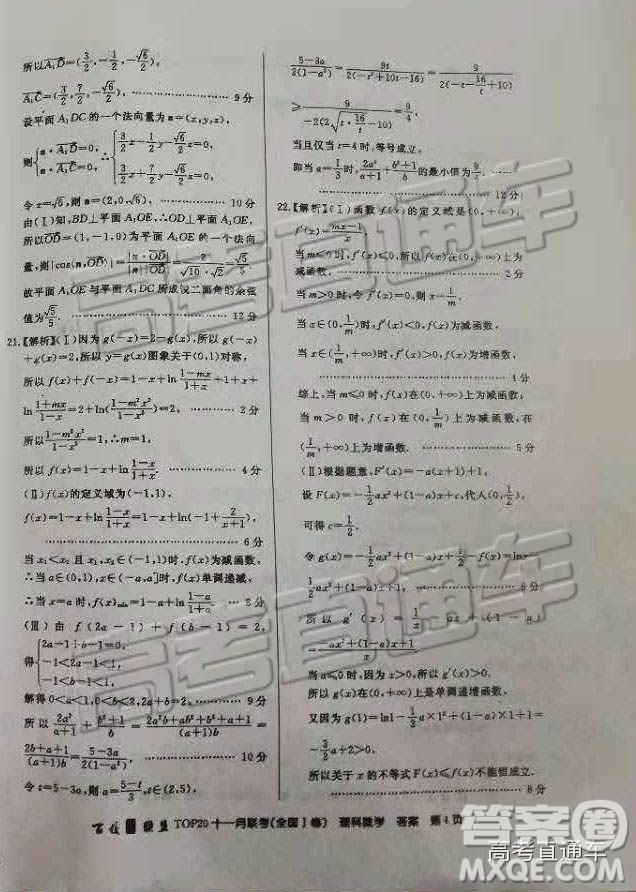 所以A₁D=(3/2,-1/2,-√6/2),
A₁C=(3/2,7/2,-√6/2). ……9分
设平面A₁DC的一个法向量为n=(x,y,z),
则{n·A₁D=0, n·A₁C=0, ∴{3/2x-1/2y-√6/2z=0, 3/2x+7/2y-√6/2z=0,
令z=√6,则n=(2,0,√6). ……10分
由(Ⅰ)知,BD⊥平面A₁OE,∴OD⊥平面A₁OE,
所以OD=(1,-1,0)为平面A₁OE的一个法向
量,则|cos⟨n,OD⟩|=|n·OD|/|n||OD|=2/(√10·√2)=√5/5.
故平面A₁OE与平面A₁DC所成锐二面角的余弦
值为√5/5. ……12分
21.【解析】(Ⅰ)因为g(-x)=2-g(x),所以g(-x)
+g(x)=2,所以y=g(x)图象关于(0,1)对称,
所以f(x)+f(-x)=1-x+ln(1-mx)/(1+x)+1+x+
ln(1+mx)/(1-x)=2+ln(1-m²x²)/(1-x²)=2, ……2分
所以(1-m²x²)/(1-x²)=1,∴m=1.
所以f(x)=1-x+ln(1-x)/(1+x). ……4分
(Ⅱ)f(x)的定义域为(-1,1),
f(x)=1-x+ln(1-x)/(1+x)=1-x+ln(-1+2/(x+1)),
……6分
当x₁<x₂且x₁,x₂∈(-1,1)时,f(x)为减函数,
∴当a∈(0,1),x∈(-a,a]时,f(x)单调递减,
∴当x=a时,f(x)min=1-a+ln(1-a)/(1+a). ……8分
(Ⅲ)由f(2a-1)+f(b)=2,
得{2a-1+b=0, -1<2a-1<1, -1<b<1,
解得0<a<1,0<b<2,2a+b=2, ……9分
所以2a²/(a+1)+(b²+1)/b=(2a²b+ab²+b²+a+1)/((a+1)b)=
(2b+a+1)/((a+1)b)=(5-3a)/(2(1-a²)). ……10分
令t=5-3a,则a=(5-t)/3,
(5-3a)/(2(1-a²))=9t/(2(-t²+10t-16))=9/(2(-t-16/t+10))
≥9/(-2(2√(t·16/t)-10))=9/4,
当且仅当t=4时,等号成立,
即当a=1/3时,2a²/(a+1)+(b²+1)/b的最小值为9/4.
……12分
22.【解析】(Ⅰ)函数f(x)的定义域是(0,+∞),
f′(x)=(mx-1)/x,
当m≤0时,f′(x)<0,所以f(x)在(0,+∞)上为
减函数, ……2分
当m>0时,f′(x)=0,则x=1/m,
当x∈(0,1/m)时,f′(x)<0,f(x)为减函数,
当x∈(1/m,+∞)时,f′(x)>0,f(x)为增函数,
……4分
综上,当m≤0时,f(x)在(0,+∞)上为减函数,
当m>0时,f(x)在(0,1/m)上为减函数,在
(1/m,+∞)上为增函数. ……5分
(Ⅱ)根据题意,F′(x)=-a(x+1)+1,
设F(x)=-1/2ax²+(1-a)x+c,代入(0,1/2),
可得c=1/2.
令g(x)=-1/2ax²+(1-a)x-f(x)=lnx-
1/2ax²+(1-a)x+1, ……8分
所以g′(x)=1/x-ax+(1-a)=
(-ax²+(1-a)x+1)/x.
当a≤0时,因为x>0,所以g′(x)>0.
所以g(x)在(0,+∞)上是单调递增函数,
又因为g(1)=ln1-1/2a×1²+(1-a)+1=
-3/2a+2>0,
所以关于x的不等式F(x)≤f(x)不能恒成立.
……8分
TOP20十一月联考(全国Ⅰ卷) 理科数学 答案 第4页
高考直通车
高考直通车
答案圈
高考直通车